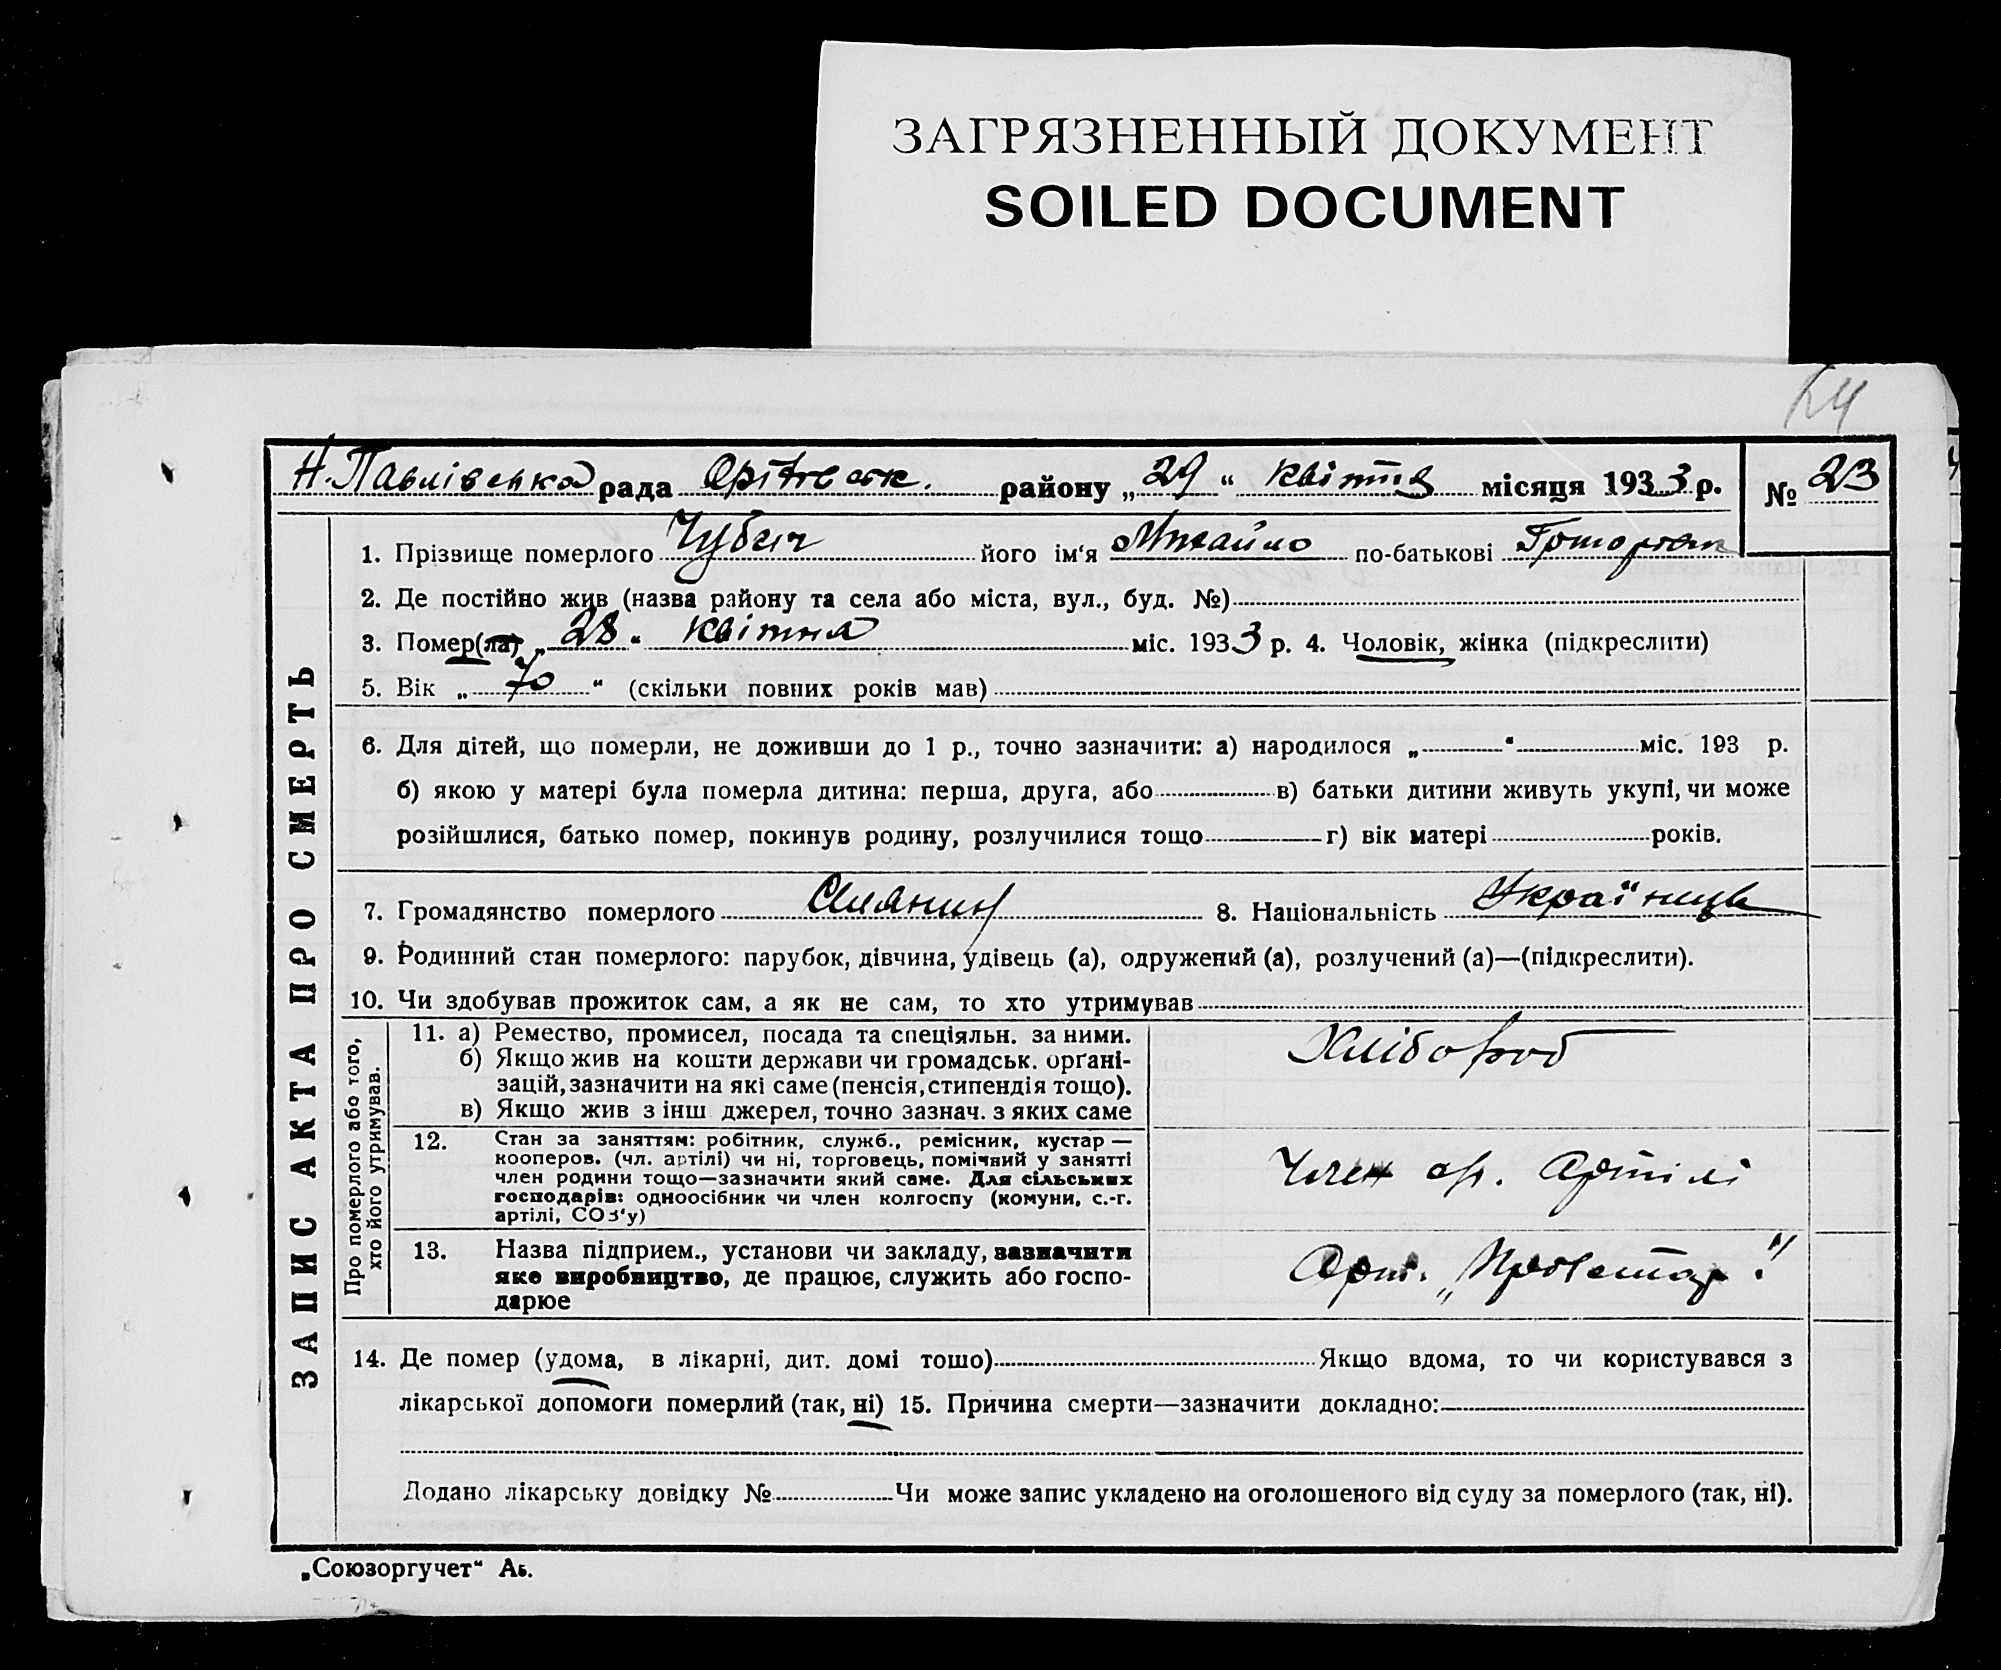 ЗАГРЯЗНЕННЫЙ ДОКУМЕНТ
SOILED DOCUMENT
24
Н. Павлівська рада району „29“ квітня місяця 1933 р. № 23
ЗАПИС АКТА ПРО СМЕРТЬ
1. Прізвище померлого його ім‘я Михайло по-батькові
2. Де постійно жив (назва району та села або міста, вул., буд. №)
3. Помер(ла) „28“ квітня міс. 1933 р. 4. Чоловік, жінка (підкреслити)
5. Вік „70“ (скільки повних років мав)
6. Для дітей, що померли, не доживши до 1 р., точно зазначити: а) народилося „ “ міс. 193 р.
б) якою у матері була померла дитина: перша, друга, або в) батьки дитини живуть укупі, чи може
розійшлися, батько помер, покинув родину, розлучилися тощо г) вік матері років.
7. Громадянство померлого Селянин 8. Національність Українець
9. Родинний стан померлого: парубок, дівчина, удівець (а), одружений (а), розлучений (а)—(підкреслити).
10. Чи здобував прожиток сам, а як не сам, то хто утримував
Про померлого або того,
хто його утримував.
11. а) Ремество, промисел, посада та спеціяльн. за ними.
б) Якщо жив на кошти держави чи громадськ. орґані-
зацій, зазначити на які саме (пенсія, стипендія тощо).
в) Якщо жив з інш джерел, точно зазнач. з яких саме
Хлібороб
12. Стан за заняттям: робітник, служб., ремісник, кустар —
кооперов. (чл. артілі) чи ні, торговець, помічний у занятті
член родини тощо—зазначити який саме. Для сільських
господарів: одноосібник чи член колгоспу (комуни, с.-г.
артілі, СОЗ‘у)
Член с.г. Артілі
13. Назва підприєм., установи чи закладу, зазначити
яке виробництво, де працює, служить або госпо-
дарює
Арт. „Пролетар“
14. Де помер (удома, в лікарні, дит. домі тошо) Якщо вдома, то чи користувався з
лікарської допомоги померлий (так, ні) 15. Причина смерти—зазначити докладно:
Додано лікарську довідку № Чи може запис укладено на оголошеного від суду за померлого (так, ні).
„Союзоргучет“ Аь.